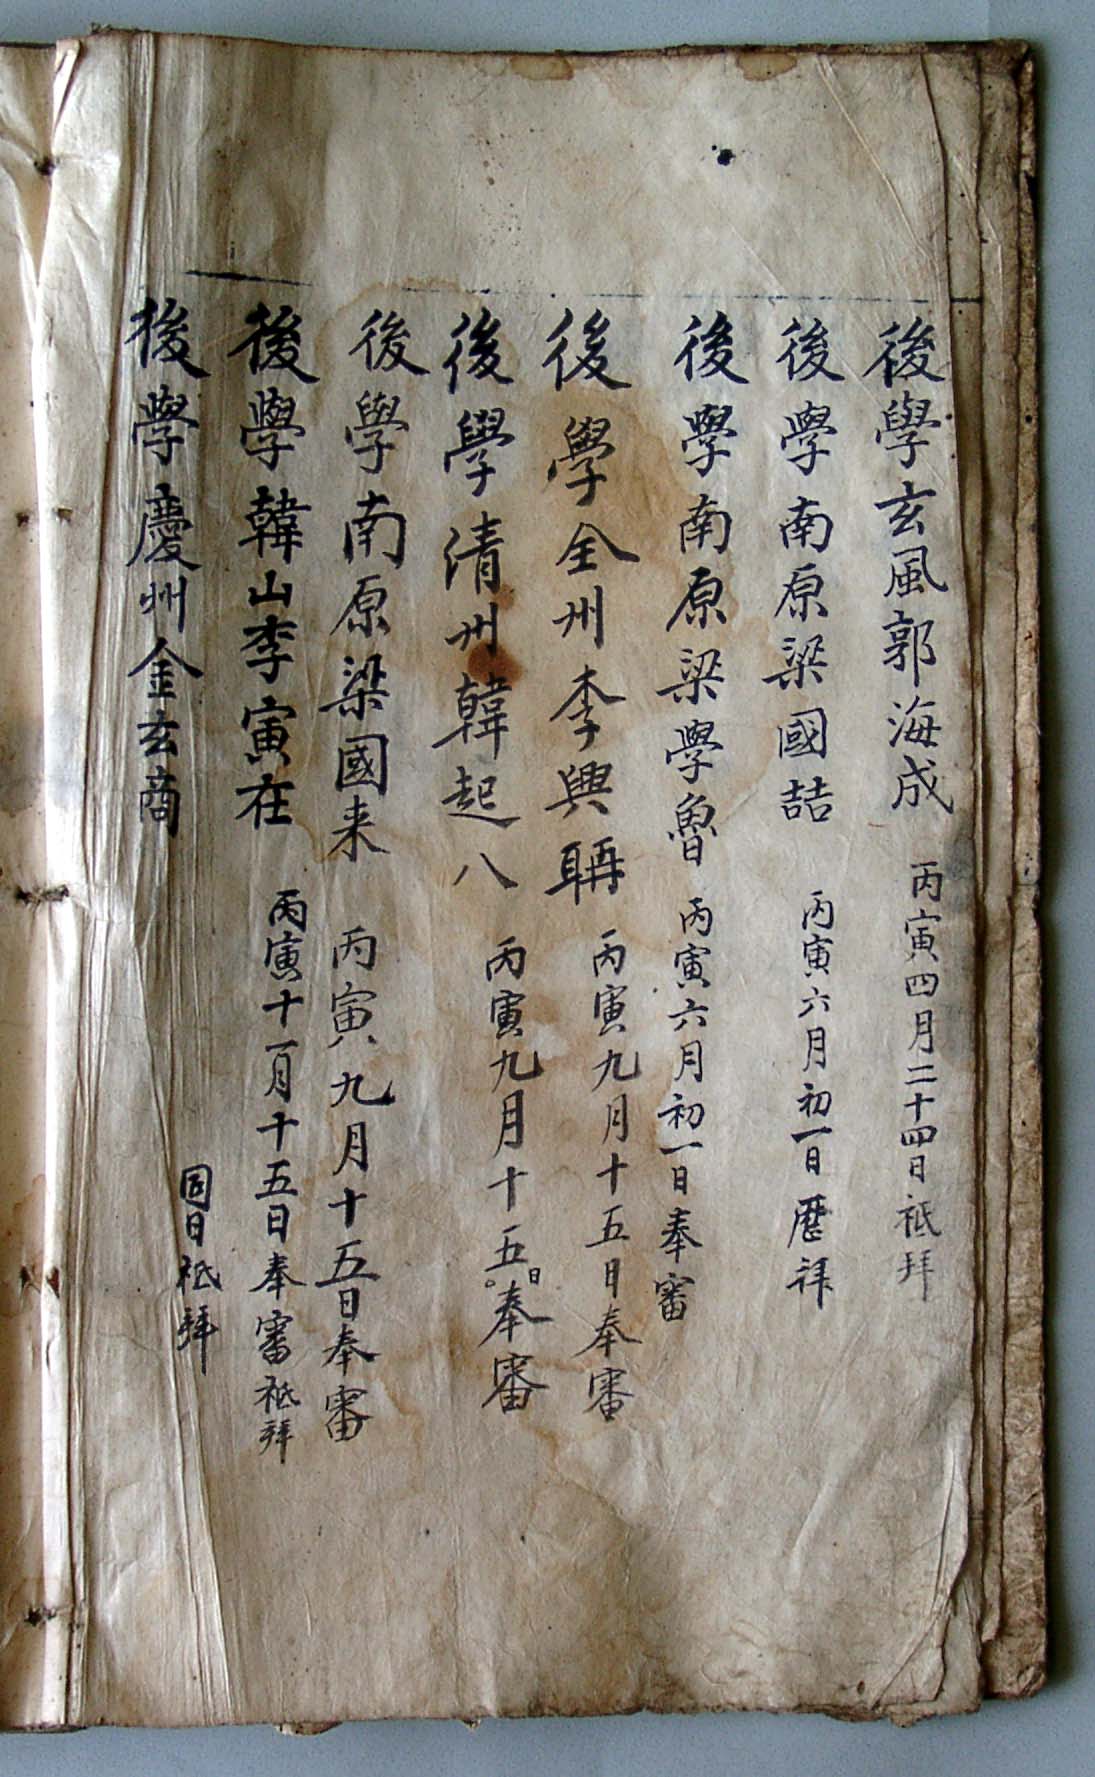 後學玄風郭海成 丙寅四月二十四日祗拜
後學南原梁國喆 丙寅六月初一日歷拜
後學南原梁學魯 丙寅六月初一日奉審
後學全州李興聃 丙寅九月十五日奉審
後學清州韓起八 丙寅九月十五日奉審
後學南原梁國来 丙寅九月十五日奉審
後學韓山李寅在 丙寅十一月十五日奉審祗拜
後學慶州金玄商 同日祗拜